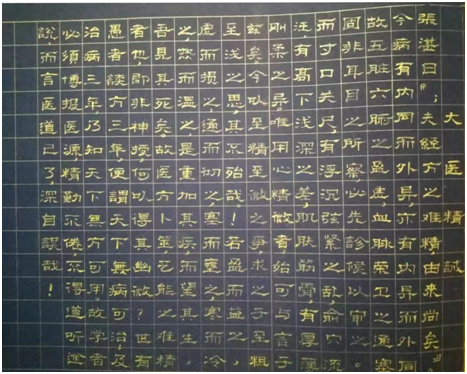 大医精誠
張湛曰"夫經方之难精,由来尚矣"。
今病有内同而外异,亦有内异而外同,
故五脏六腑之盈虚,血脉荣卫之通塞,
固非耳目之所察,必先診候以审之。
而寸口关尺,有浮沉弦紧之乱,俞穴流
注,有高下浅深之差,肌肤筋骨,有厚薄
刚柔之异。唯用心精微者,始可与言于
兹矣。今以至精至微之事,求之于至粗
至浅之思,其不殆哉!若盈而益之,
虚而损之,通而彻之,塞而壅之,寒而冷
之,热而温之,是重加其疾,而望其生,
吾見其死矣。故医方卜筮,艺能之难精
者也,既非神授,何以得其幽微?世有
愚者,談方三年,便謂天下無病可治;及
治病三年,乃知天下無方可用。故学者
必須博极医源,精勤不倦,不得道听途
説,而言医道已了,深自誤哉!